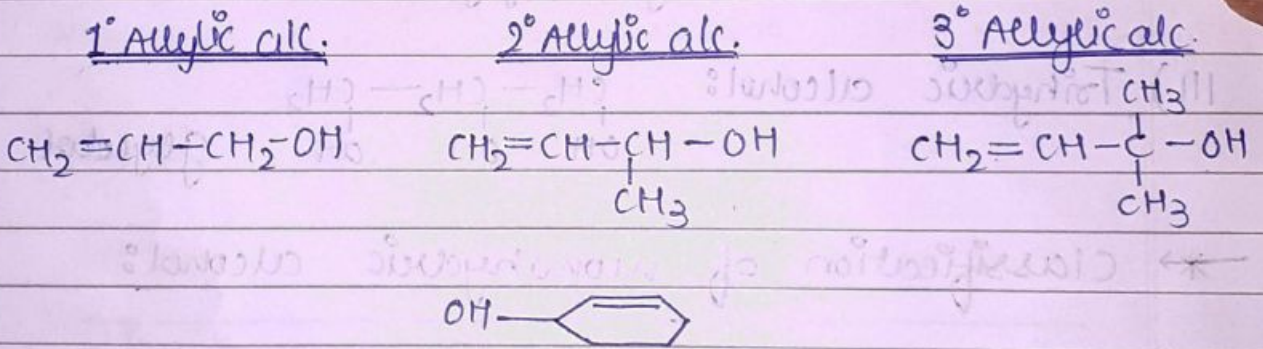 1° Allylic alc. 2° Allylic alc. 3° Allylic alc.
CH3
CH2=CH-CH2-OH CH2=CH-CH-OH CH2=CH-C-OH
CH3 CH3
OH